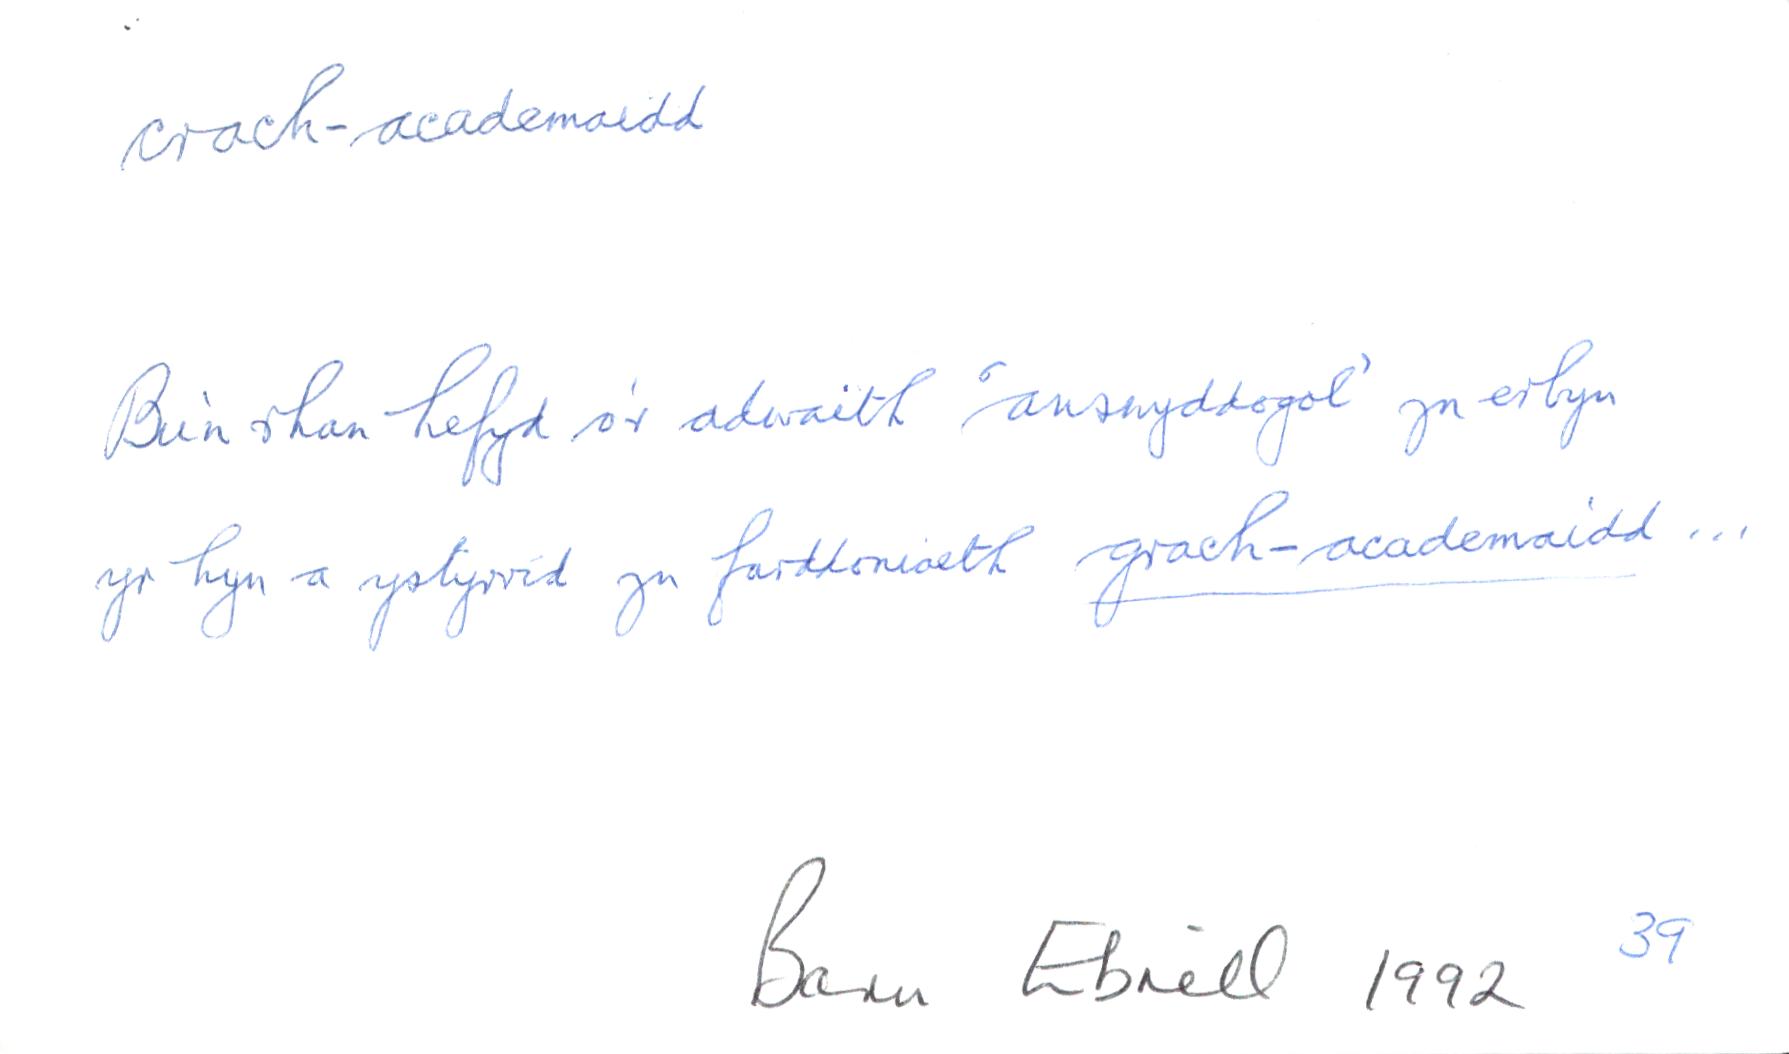 crach-academaidd
Bu'n rhan hefyd o'r adwaith 'answyddogol' yn erbyn
yr hyn a ystyrrid yn farddoniaeth grach-academaidd ...
Barn Ebrill 1992 39